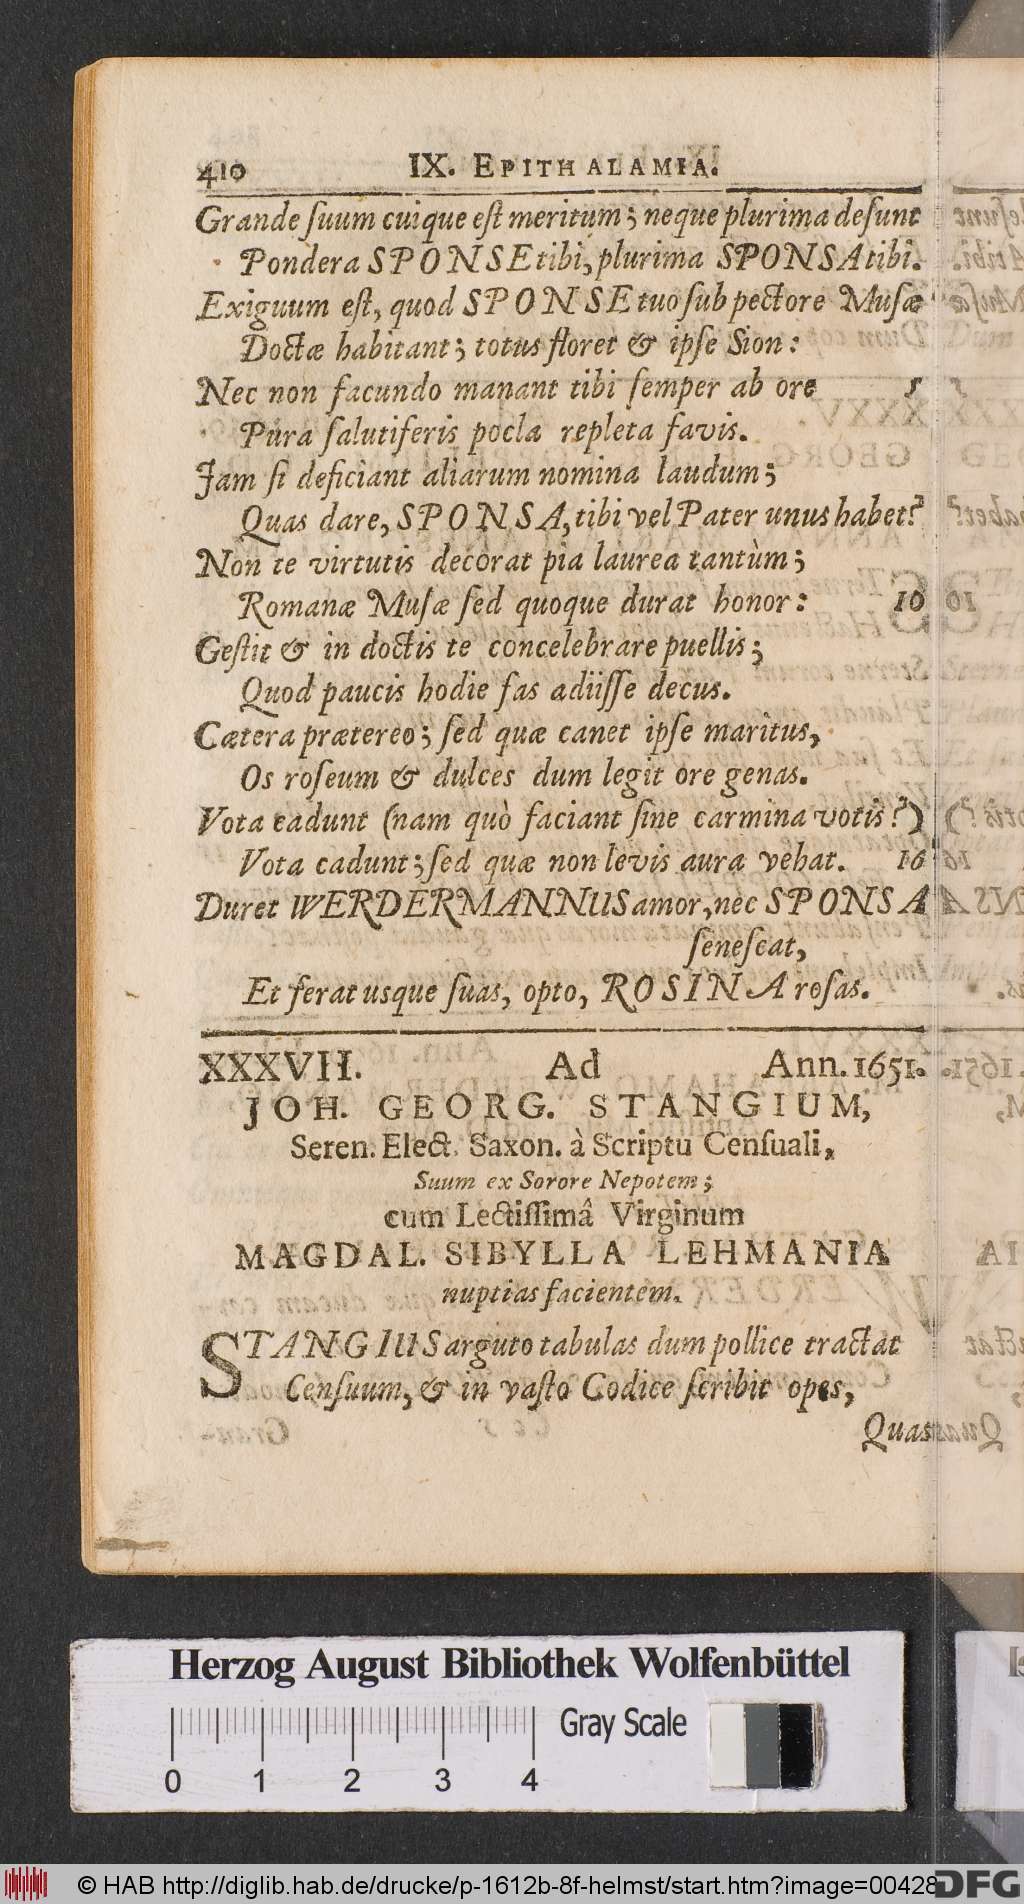 410 IX. EPITHALAMIA.
Grande ſuum cuique eſt meritum; neque plurima deſunt
Pondera SPONSE tibi, plurima SPONSA tibi.
Exiguum eſt, quod SPONSE tuo ſub pectore Muſæ
Doctæ habitant; totus floret & ipſe Sion:
Nec non facundo manant tibi ſemper ab ore 5
Pura ſalutiferis pocla repleta favis.
Jam ſi deficiant aliarum nomina laudum;
Quas dare, SPONSA, tibi vel Pater unus habet?
Non te virtutis decorat pia laurea tantùm;
Romanæ Muſæ ſed quoque durat honor: 10
Geſtit & in doctis te concelebrare puellis;
Quod paucis hodie fas adiiſſe decus.
Cætera prætereo; ſed quæ canet ipſe maritus,
Os roſeum & dulces dum legit ore genas.
Vota cadunt (nam quò faciant ſine carmina votis?)
Vota cadunt; ſed quæ non levis aura vehat. 16
Duret WERDERMANNUS amor, nec SPONSA
ſeneſcat,
Et ferat usque ſuas, opto, ROSINA roſas.
XXXVII. Ad Ann. 1651.
JOH. GEORG. STANGIUM,
Seren. Elect. Saxon. à Scriptu Cenſuali,
Suum ex Sorore Nepotem;
cum Lectiſſimâ Virginum
MAGDAL. SIBYLLA LEHMANIA
nuptias facientem.
STANGIUS arguto tabulas dum pollice tractat
Cenſuum, & in vaſto Codice ſcribit opes,
Quas
Herzog August Bibliothek Wolfenbüttel
Gray Scale
0 1 2 3 4
© HAB http://diglib.hab.de/drucke/p-1612b-8f-helmst/start.htm?image=00428
DFG